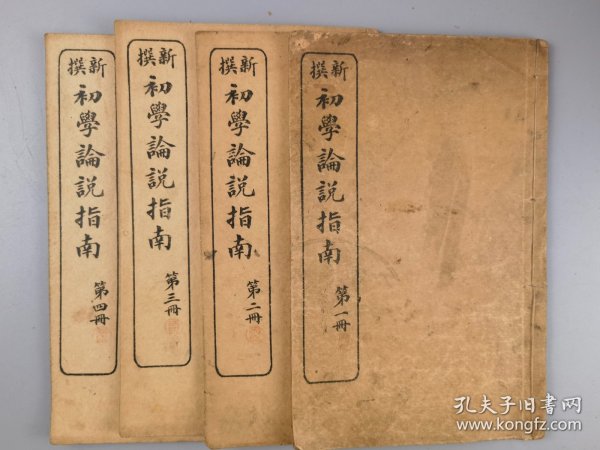 新撰
初學論說指南
第一冊
新撰
初學論說指南
第二冊
新撰
初學論說指南
第三冊
新撰
初學論說指南
第四冊
孔夫子旧书网
www.kongfz.com